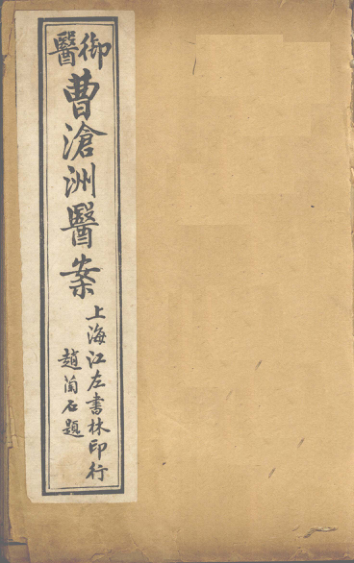 御醫
曹滄洲醫案
上海江左書林印行
趙蘭石題